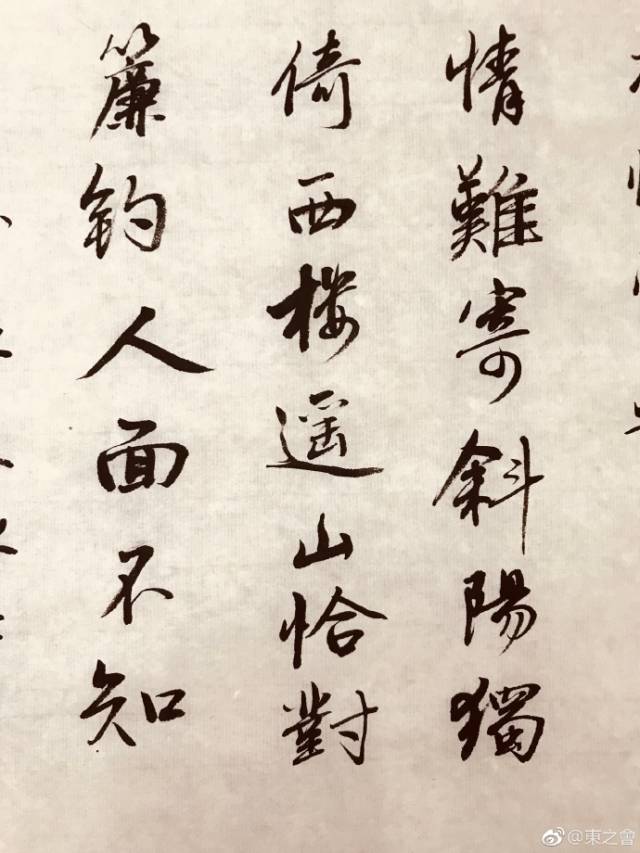 情難寄斜陽獨
倚西楼遥山恰對
簾鈎人面不知
@東之會